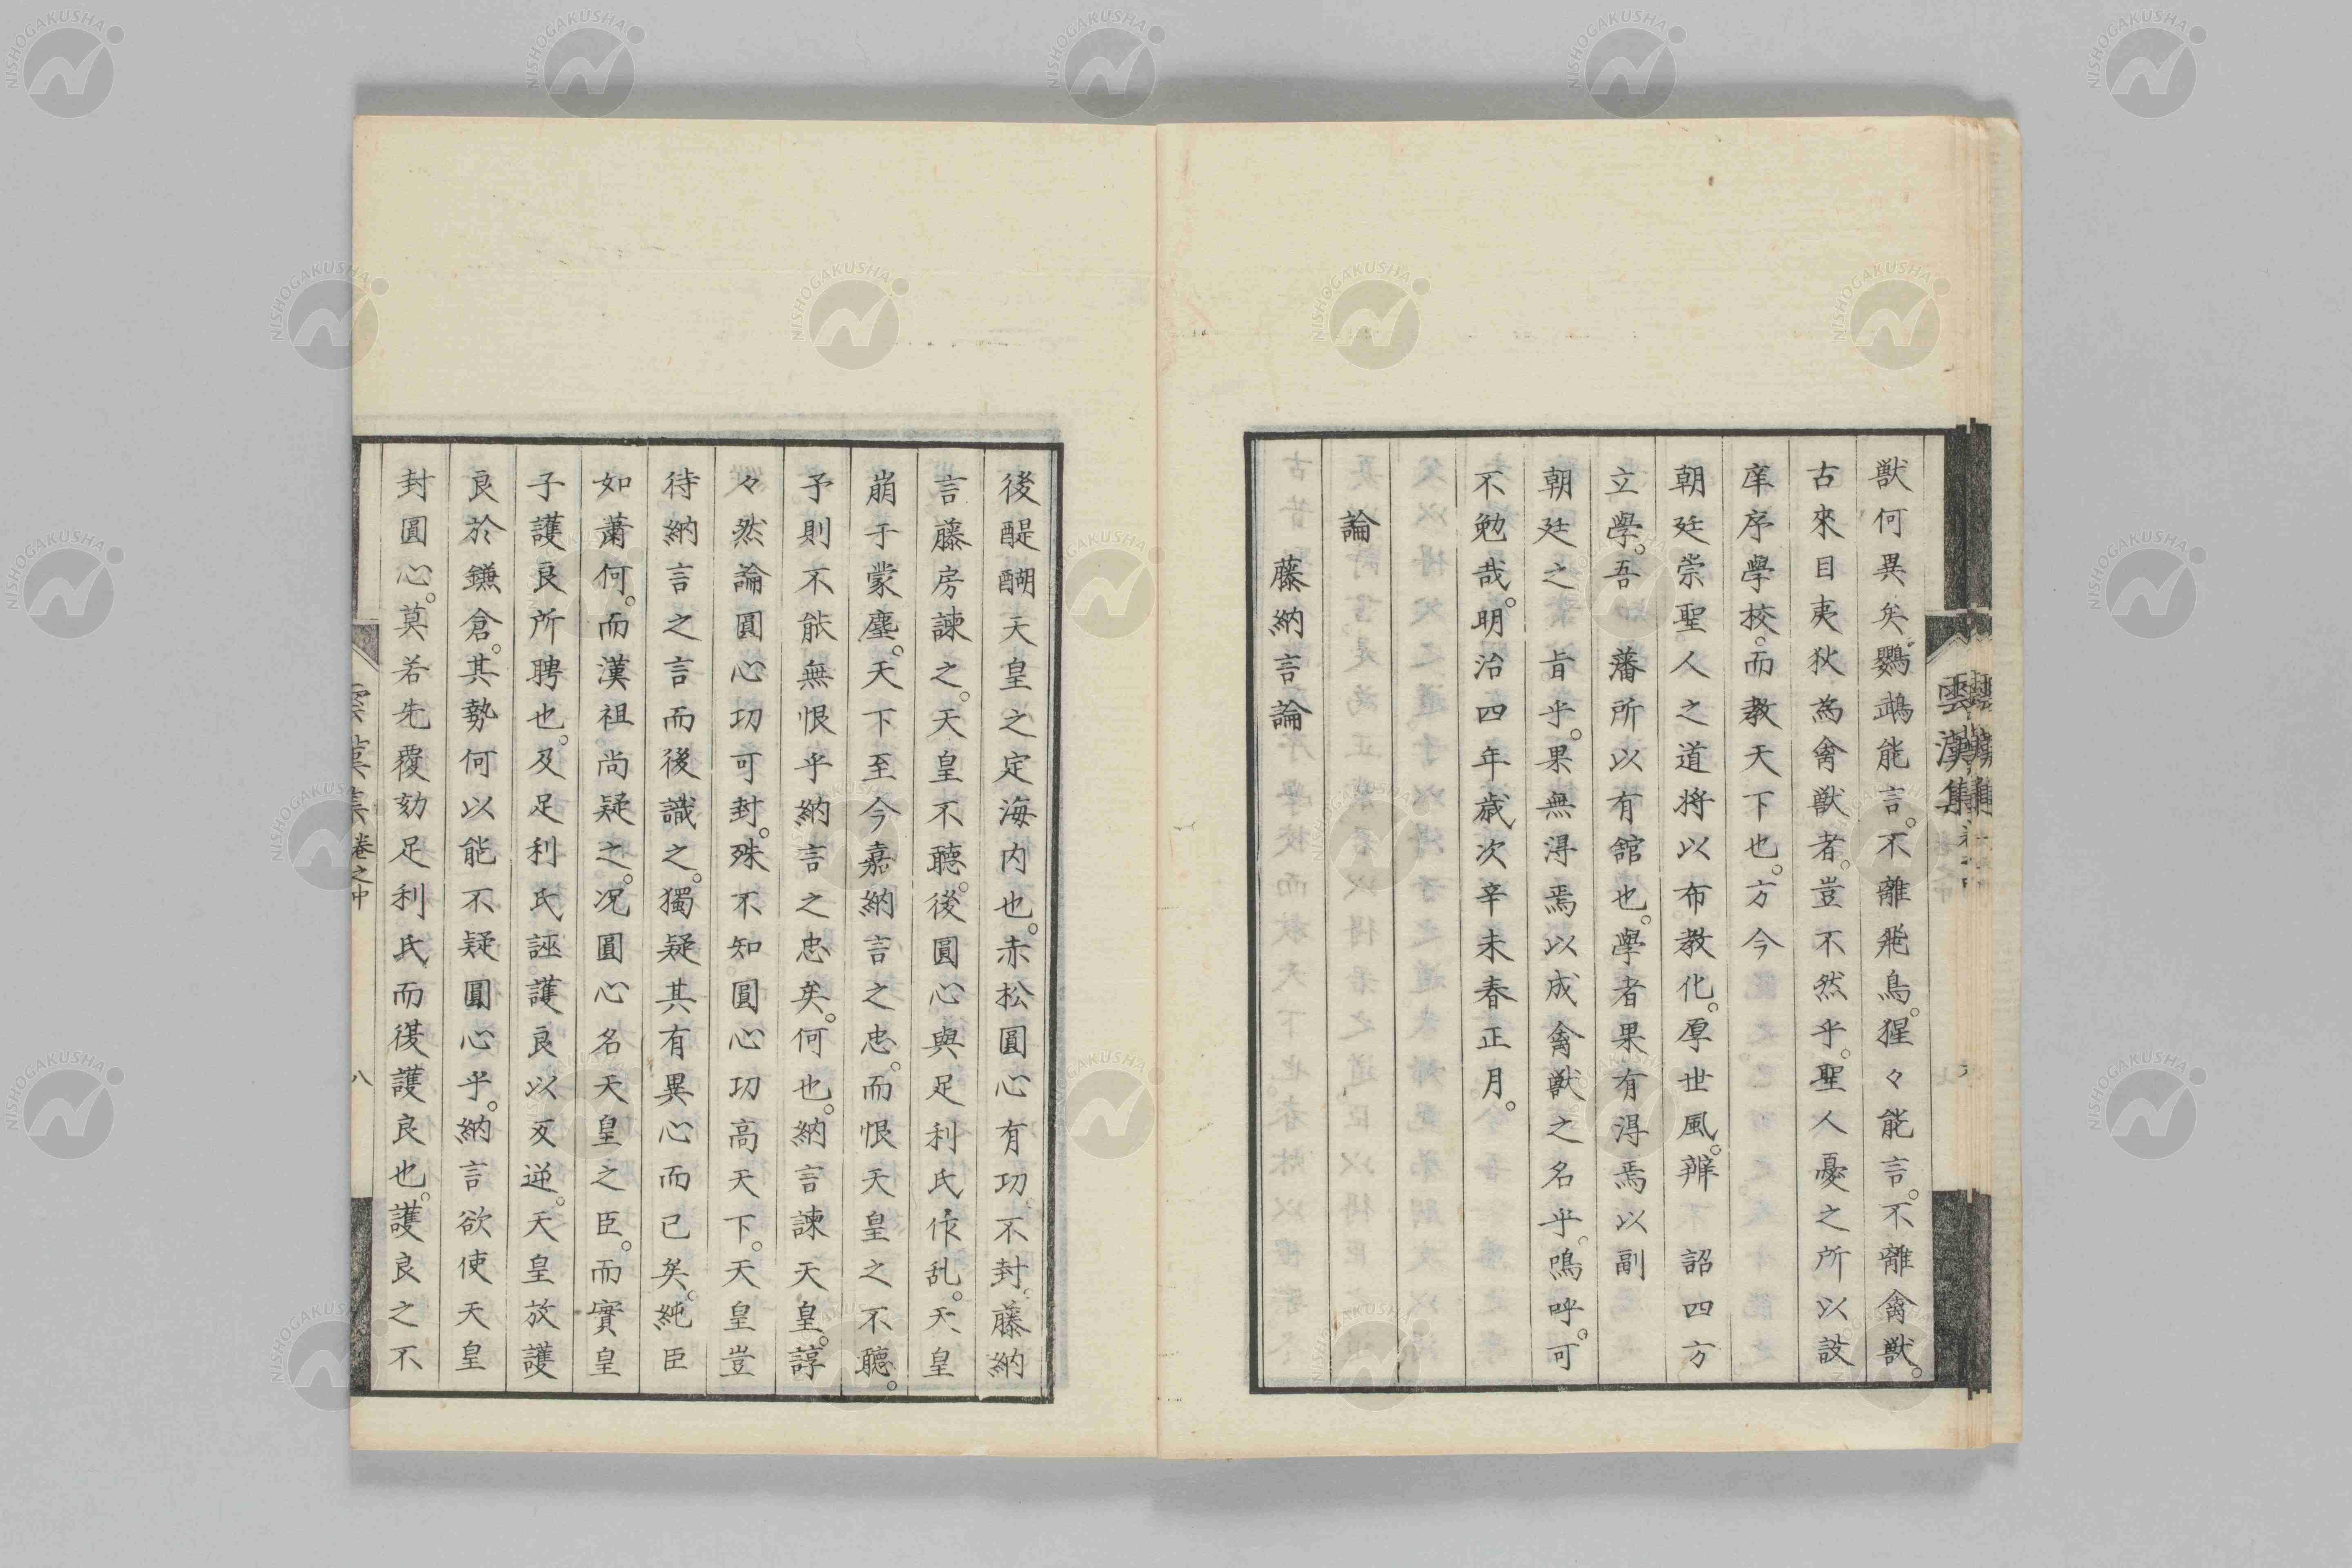 獣何異矣。鸚鵡能言。不離飛鳥。猩々能言。不離禽獣。
古來目夷狄為禽獣者。豈不然乎。聖人憂之所以設
庠序學校。而教天下也。方今
朝廷崇聖人之道将以布教化。厚世風。辨　詔四方
立學。吾　藩所以有舘也。學者果有淂焉以副
朝廷之㫖乎。果無淂焉以成禽獣之名乎。鳴呼。可
不勉哉。明治四年歳次辛未春正月。
論
藤納言論
後醍醐天皇之定海内也。赤松圓心有功。不封。藤納
言藤房諫之。天皇不聽。後圓心與足利氏作乱。天皇
崩于蒙塵。天下至今嘉納言之忠。而恨天皇之不聽。
予則不能無恨乎納言之忠矣。何也。納言諫天皇。諄
々然論圓心功可封。殊不知圓心功高天下。天皇豈
待納言之言而後識之。獨疑其有異心而已矣。純臣
如蕭何。而漢祖尚疑之。况圓心名天皇之臣。而實皇
子護良所聘也。及足利氏誣護良以反逆。天皇放護
良於鎌倉。其勢何以能不疑圓心乎。納言欲使天皇
封圓心。莫若先覆劾足利氏而復護良也。護良之不
雲漢集
卷之中
八